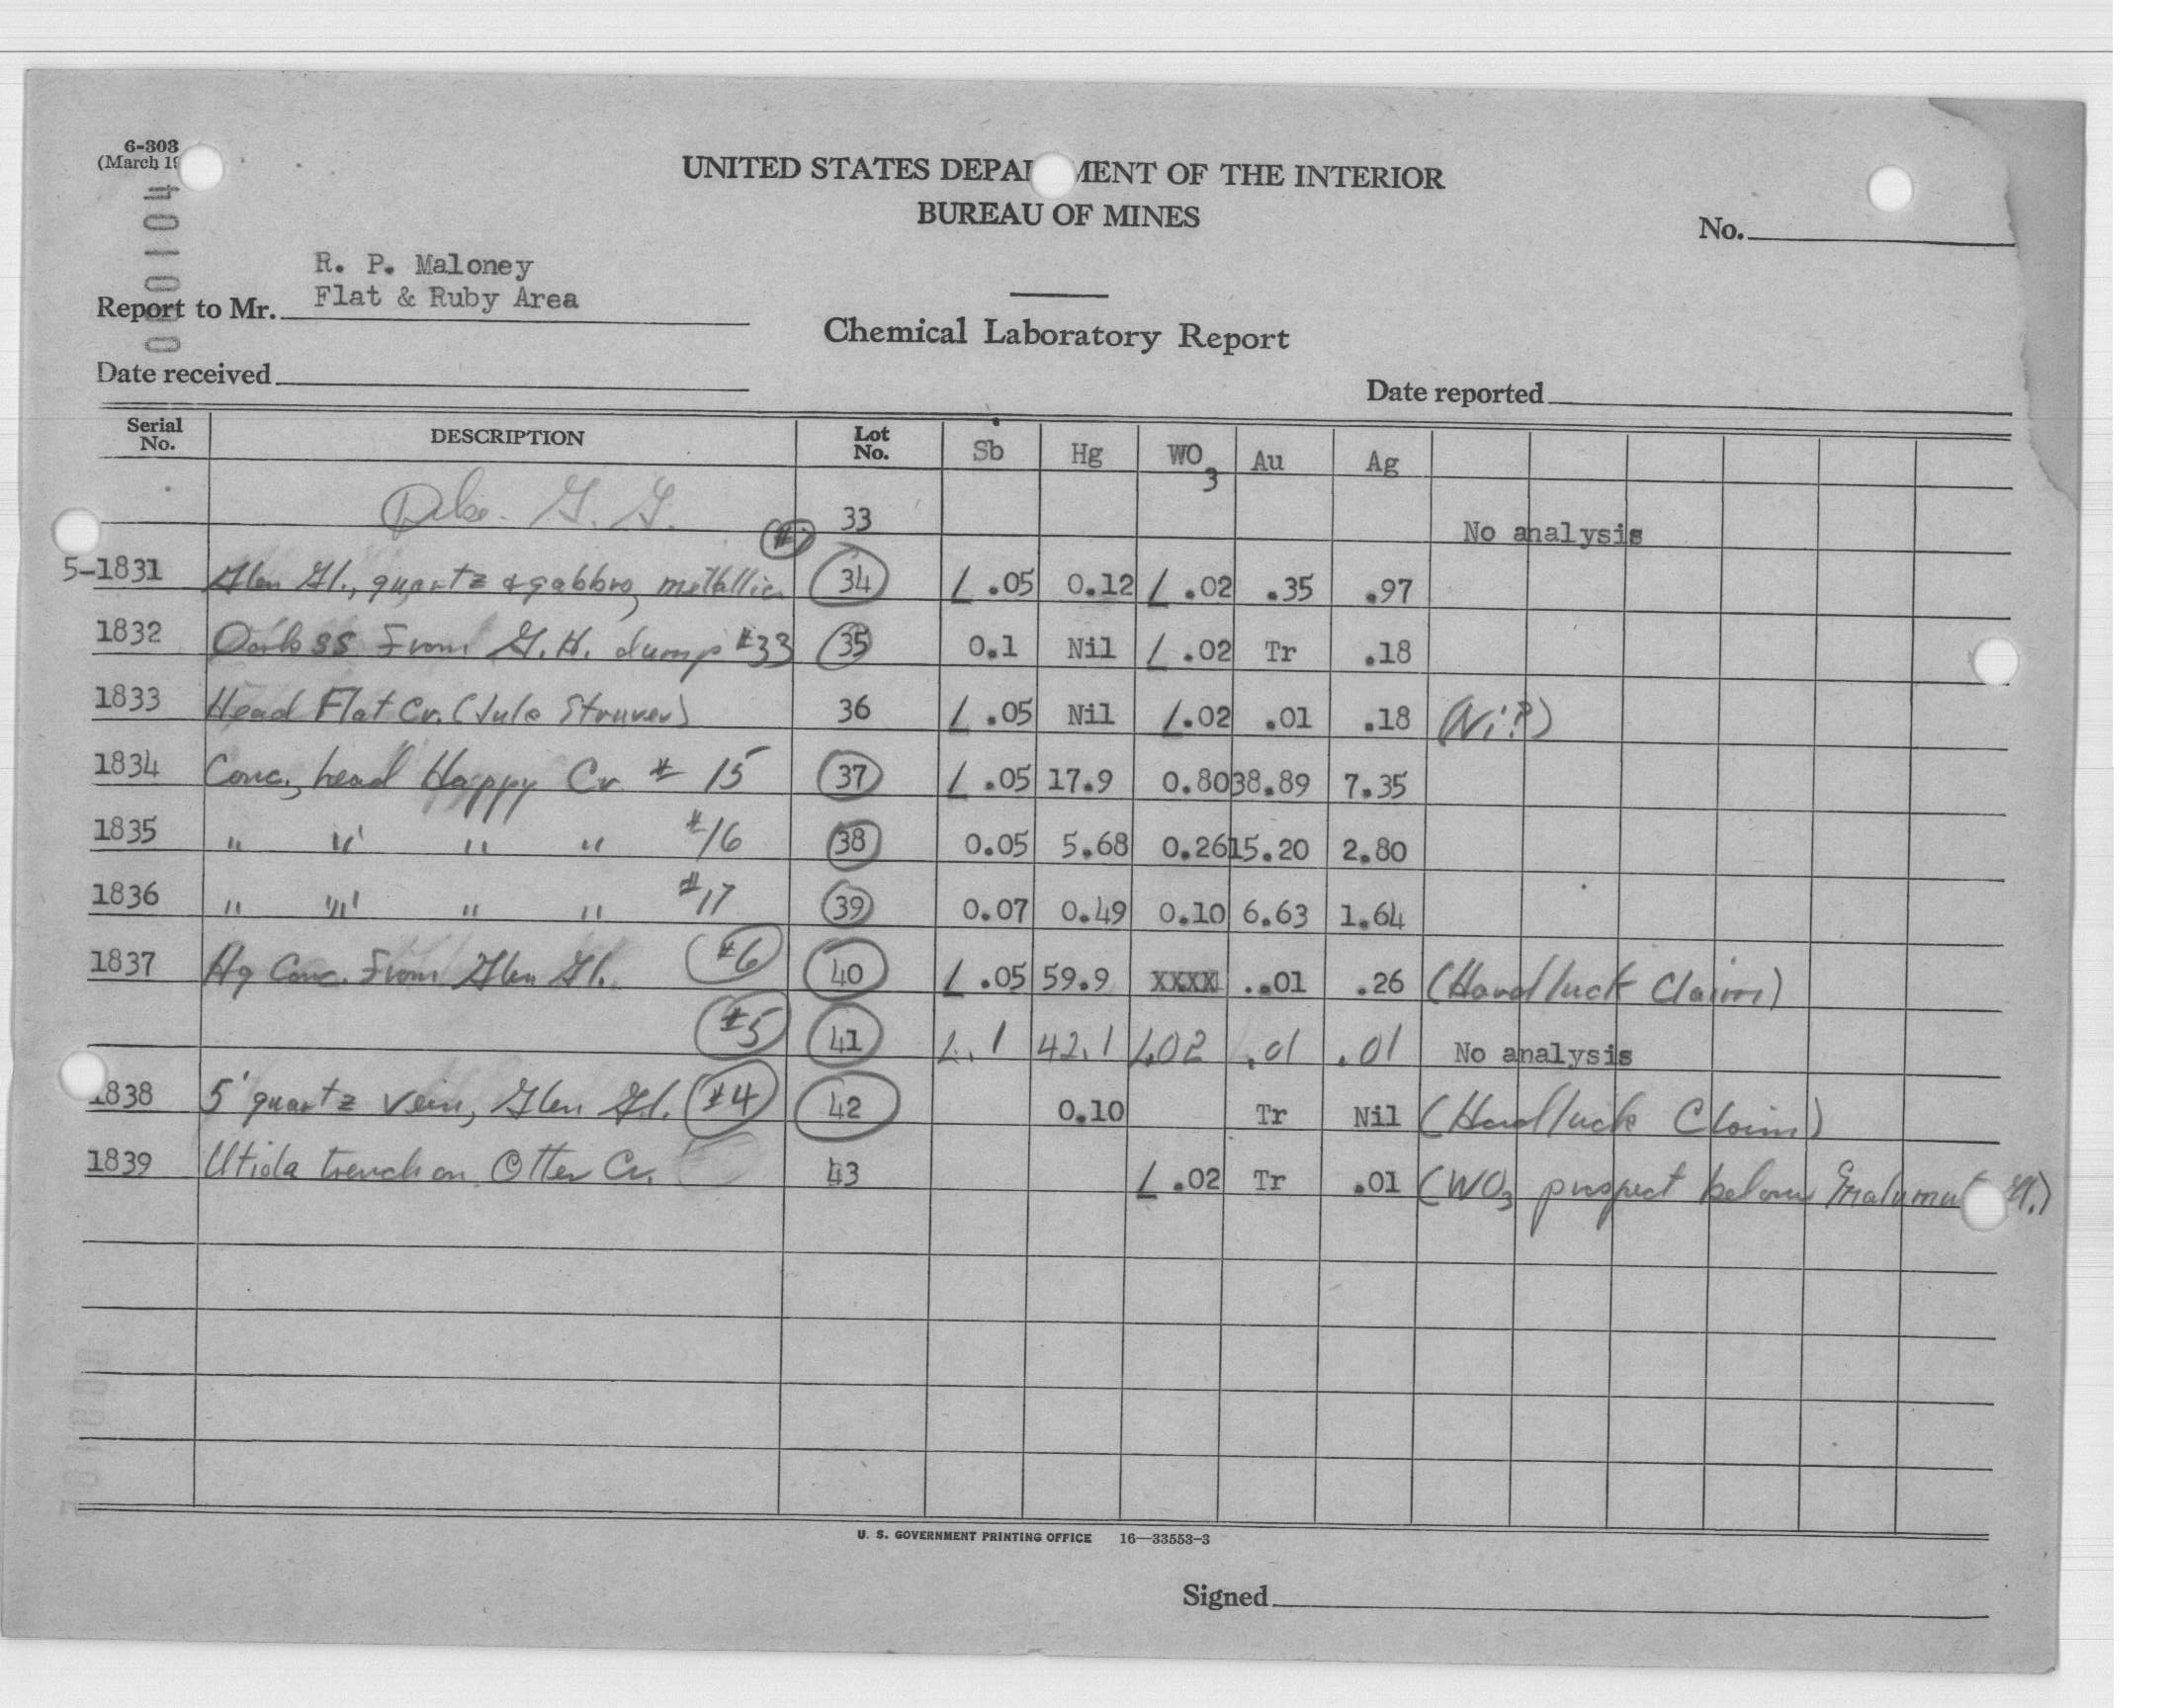 6-303
(March 19
UNITED STATES DEPA MENT OF THE INTERIOR
BUREAU OF MINES
No.
R. P. Maloney
Report to Mr. Flat & Ruby Area
Chemical Laboratory Report
Date received
Date reported
Serial No. DESCRIPTION Lot No. Sb Hg WO3 Au Ag
G. G. 33 No analysis
5-1831 Glen Gl., quartz & gabbro, metallic 34 L .05 0.12 L .02 .35 .97
1832 Dark ss from G.H. dump #33 35 0.1 Nil L .02 Tr .18
1833 Head Flat Cr. (Jule Struver) 36 L .05 Nil L.02 .01 .18 (Ni?)
1834 Conc., head Happy Cr # 15 37 L .05 17.9 0.80 38.89 7.35
1835 " " " " #16 38 0.05 5.68 0.26 15.20 2.80
1836 " " " " #17 39 0.07 0.49 0.10 6.63 1.64
1837 Hg Conc. From Glen Gl. #6 40 L .05 59.9 XXXX ..01 .26 (Hardluck Claim)
#5 41 L.1 42.1 L.02 .01 .01 No analysis
1838 5' quartz vein, Glen Gl. #4 42 0.10 Tr Nil (Hardluck Claim)
1839 Utida trench on Otter Cr. 43 L .02 Tr .01 (WO3 prospect below
U. S. GOVERNMENT PRINTING OFFICE 16—33553-3
Signed